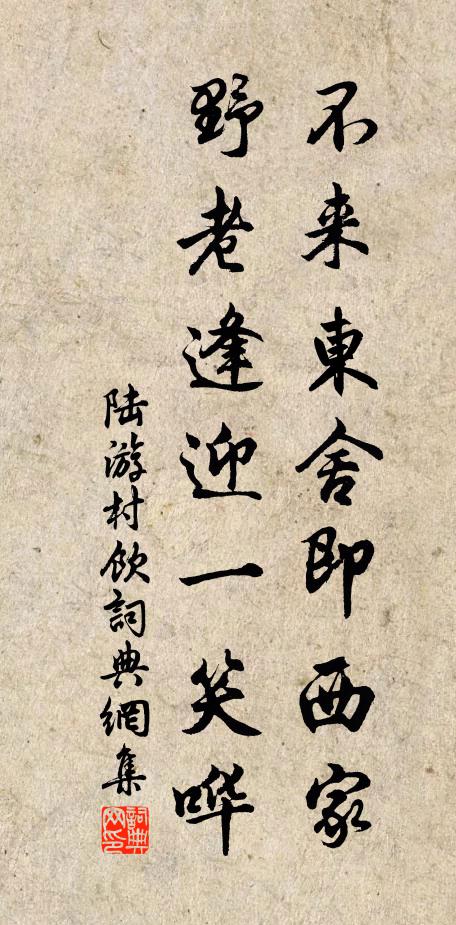 不来東舍即西家
野老逢迎一笑哗
陆游村飲詞典網集
詞典网印